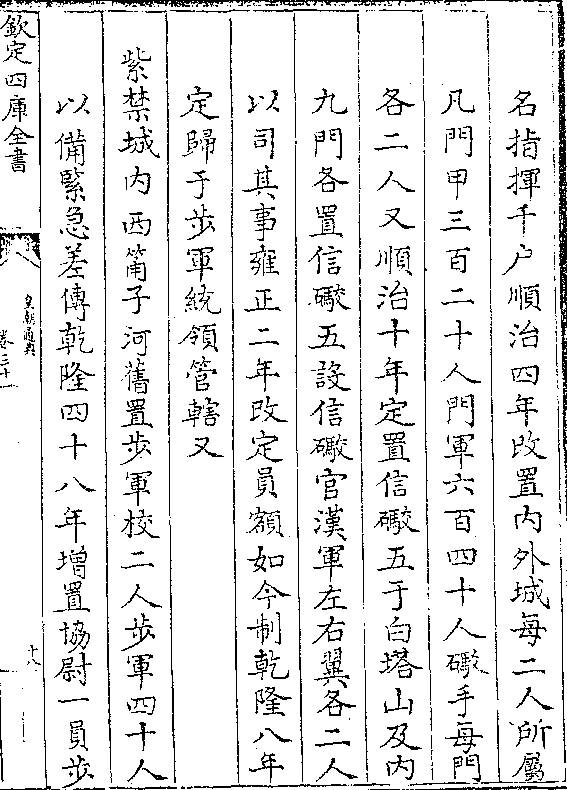 名指揮千户順治四年改置内外城每二人所屬
凡門甲三百二十人門軍六百四十人礮手每門
各二人又順治十年定置信礮五于白塔山及内
九門各置信礮五設信礮官漢軍左右翼各二人
以司其事雍正二年改定員額如今制乾隆八年
定歸于步軍統領管轄又
紫禁城内西筩子河舊置步軍校二人步軍四十人
以備緊急差傳乾隆四十八年增置協尉一員步
欽定四庫全書
皇朝通典
卷三十一
十八